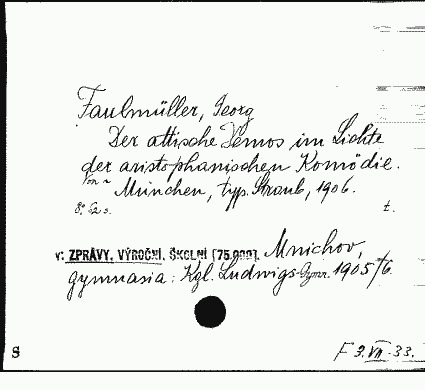 Faulmüller, Georg
Der attische Demos im Lichte
der aristophanischen Komödie.
Von ~
München, typ. Straub, 1906.
8°. 52 s. t.
v: ZPRÁVY, VÝROČNÍ, ŠKOLNÍ [75.000]. Mnichov,
gymnasia: Kgl. Ludwigs-Gymn. 1905/6.
S F 9. VII. 33.